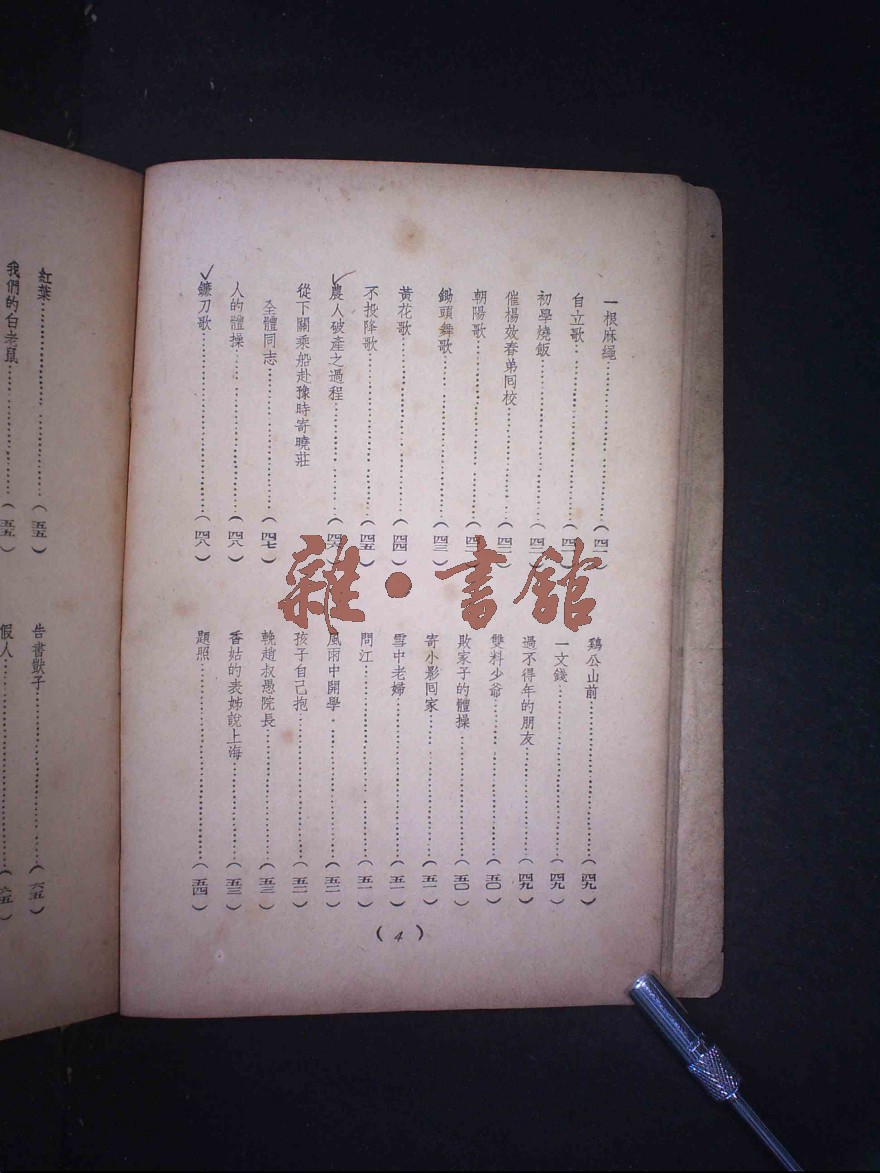 一根麻繩(四一)
自立歌(四一)
初學燒飯(四二)
催楊效春弟囘校(四二)
朝陽歌(四三)
鋤頭舞歌(四三)
黃花歌(四四)
不投降歌(四五)
農人破產之過程(四六)
從下關乘船赴豫時寄曉莊
全體同志(四七)
人的體操(四八)
鐮刀歌(四八)
鷄公山前(四九)
一文錢(四九)
過不得年的朋友(四九)
雙料少爺(五〇)
敗家子的體操(五〇)
寄小影囘家(五一)
雪中老婦(五一)
問江(五一)
風雨中開學(五二)
孩子自己抱(五二)
輓趙叔愚院長(五三)
香姑的表姊說上海(五三)
題照(五四)
(4)
紅葉(五五)
我們的白老鼠(五五)
告書獃子(六五)
假人(六五)
雜·書館